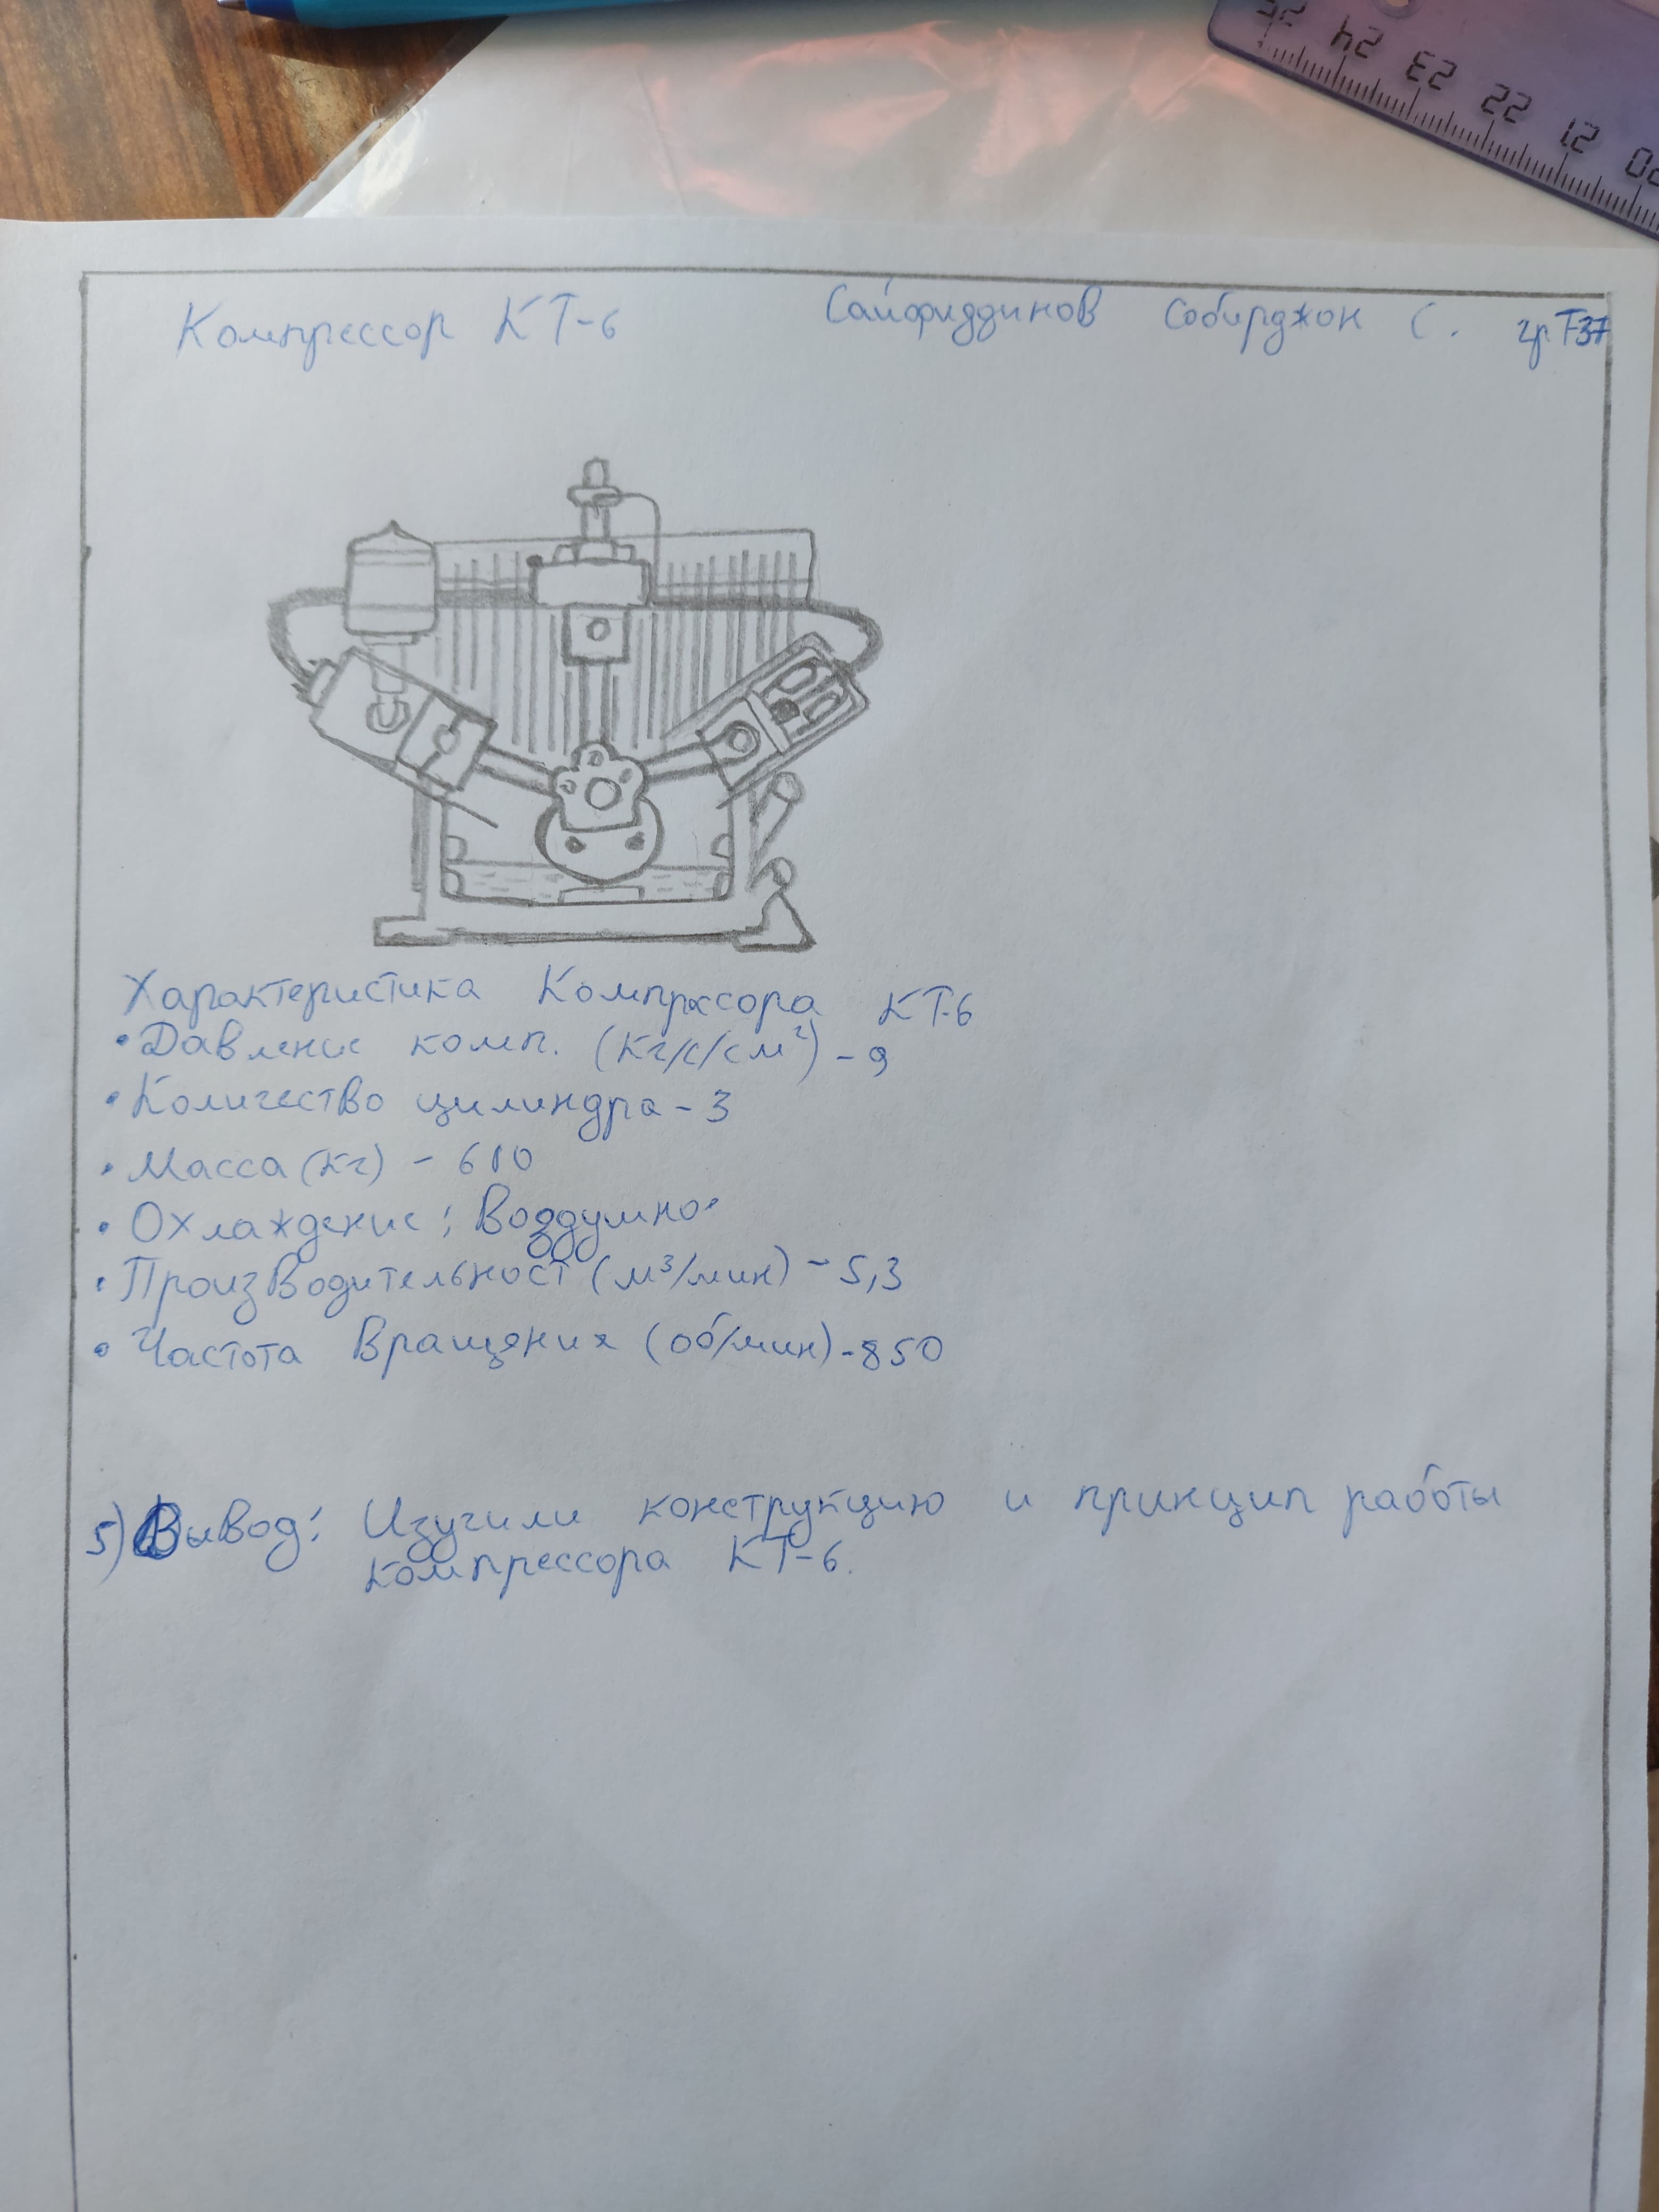 25 24 23 22 21 20
Компрессор КТ-6 Сайфиддинов Собирджон С. гр Т-37
Характеристика Компрессора КТ-6
• Давление комп. (кг/с/см²) - 9
• Количество цилиндра - 3
• Масса (кг) - 610
• Охлаждение: Воздушное
• Производительност (м³/мин) - 5,3
• Частота Вращения (об/мин) - 850
5) Вывод: Изучили конструкцию и принцип работы
компрессора КТ-6.